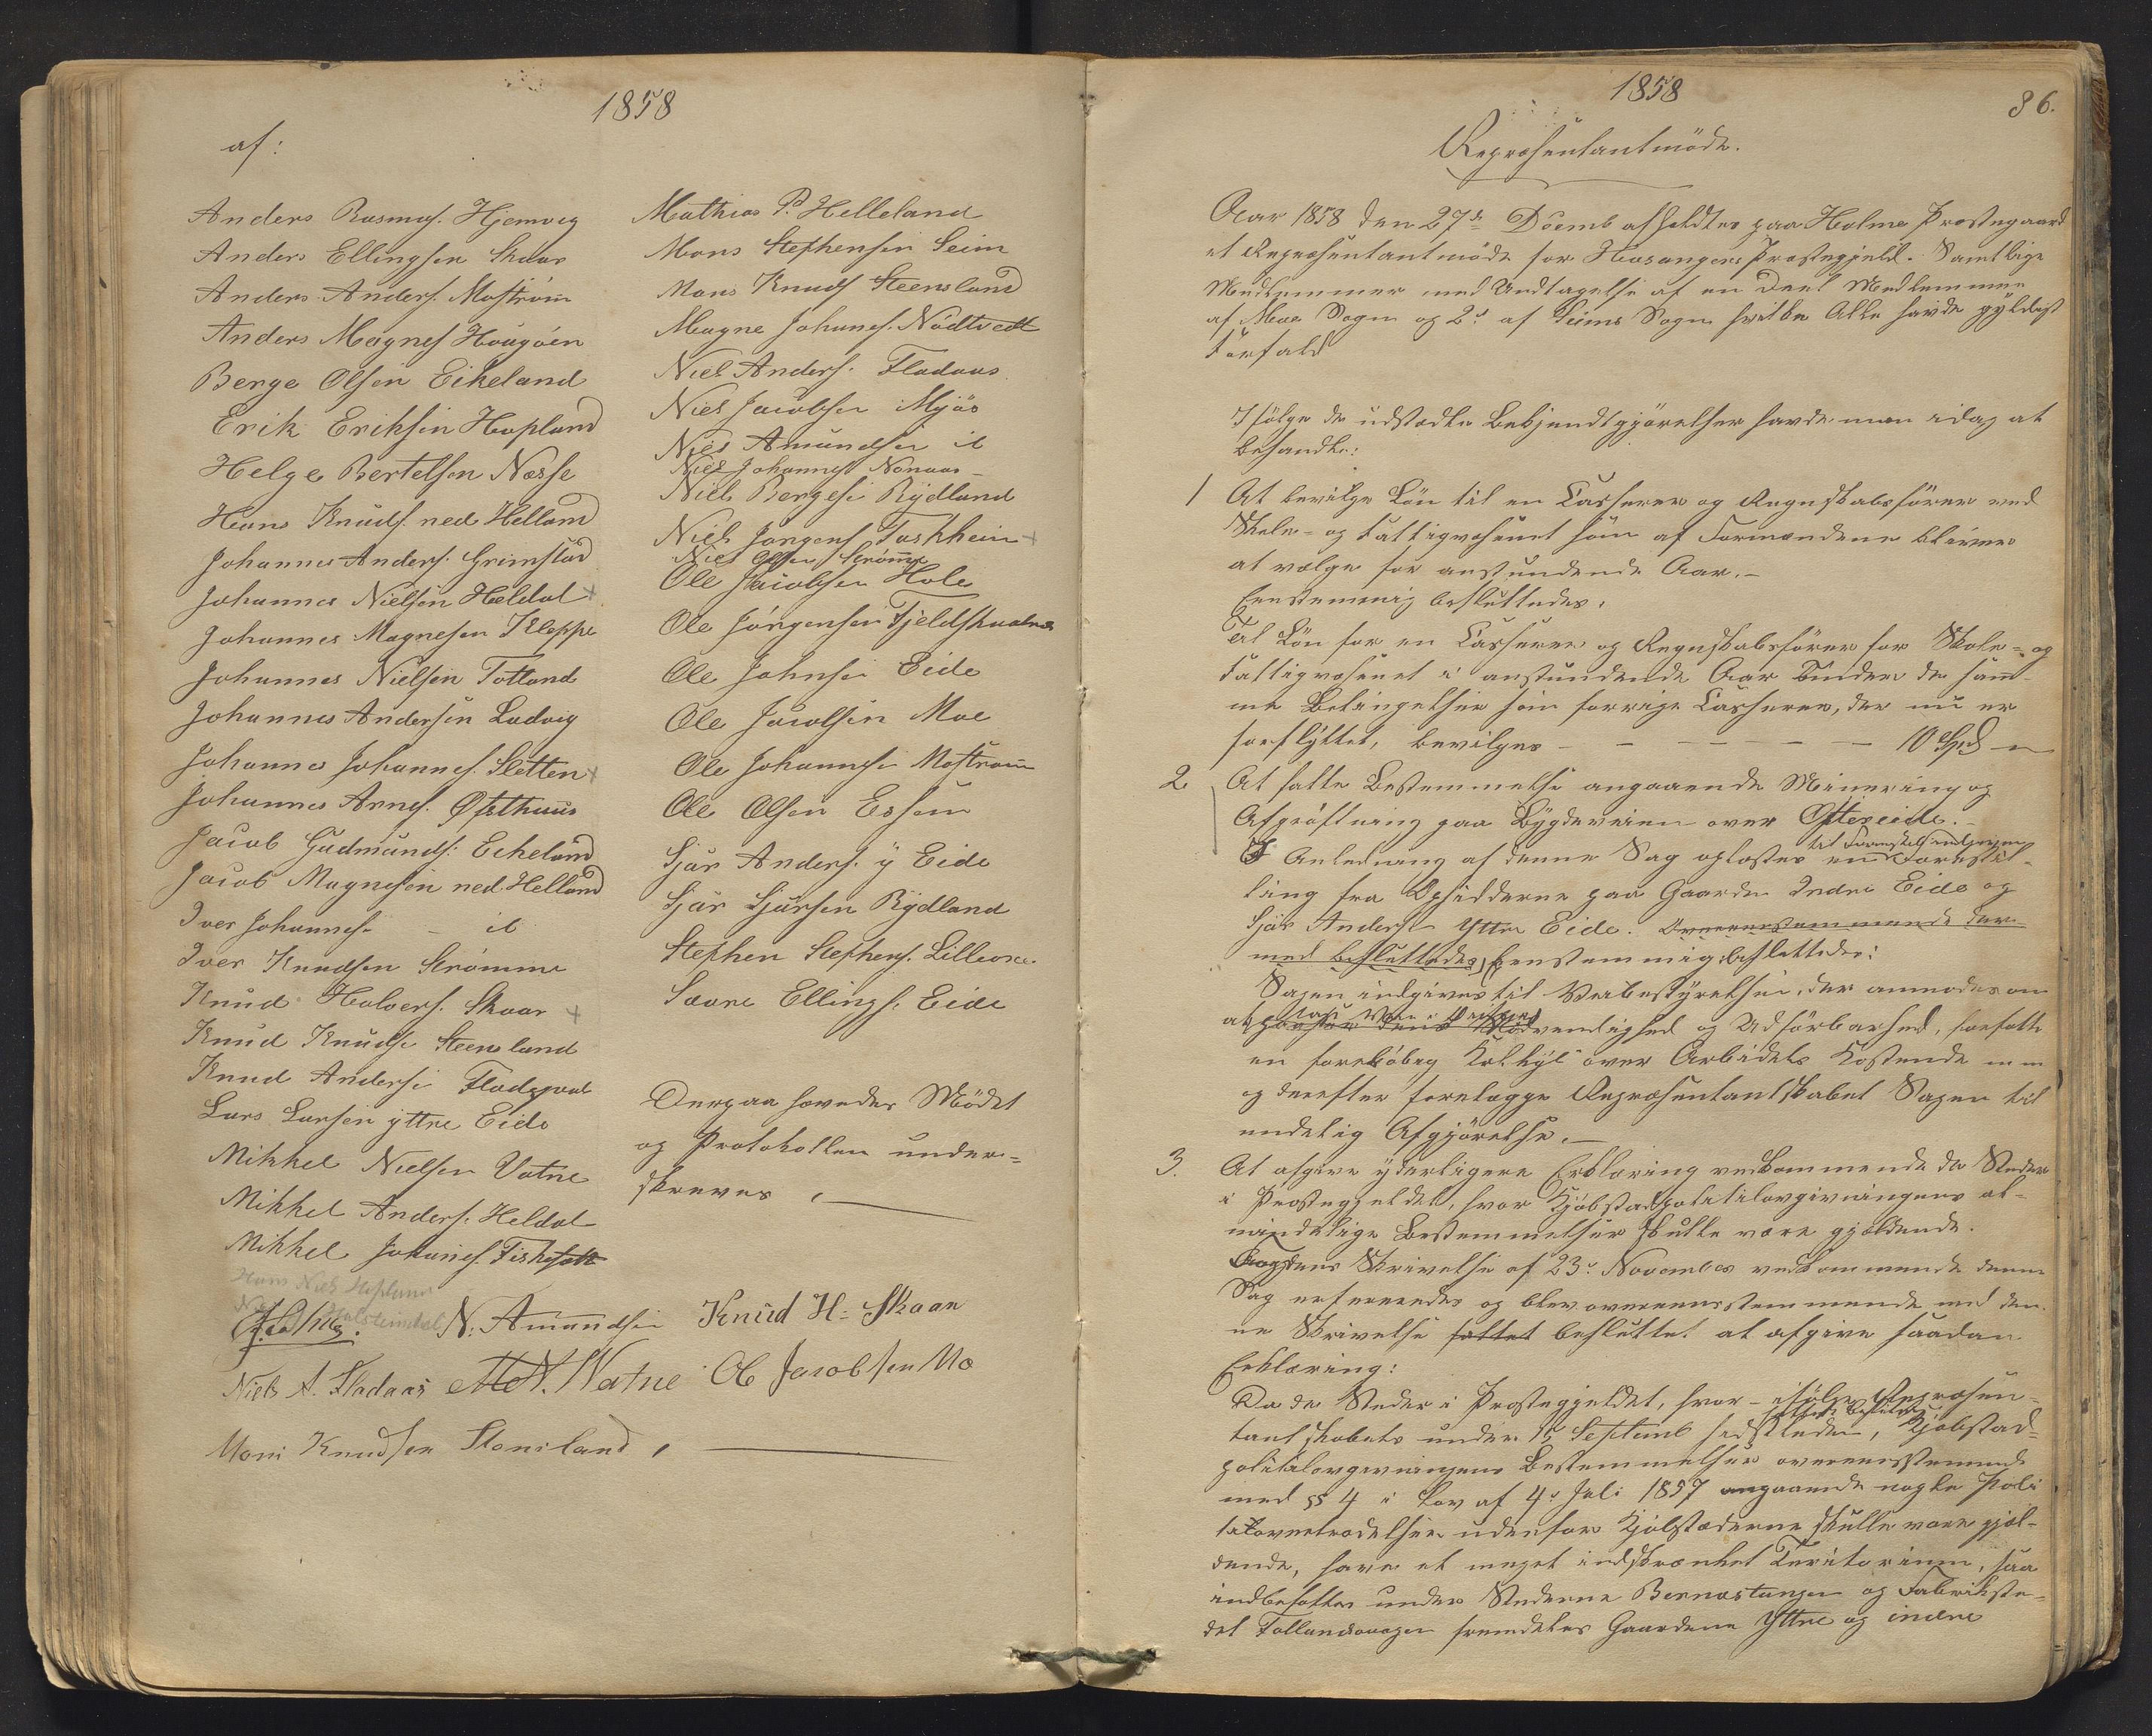 1858
af:
Anders Rasmus. Hjemvig
Anders Ellingsen Skaar
Anders Anders. Mostrøm
Anders Magnes Hougøen
Berge Olsen Eikeland
Erik Eriksen Hopland
Helge Bertelsen Nesse
Hans Knuds. ned Helland
Johannes Anders. Grimstad
Johannes Nielsen Heldal
Johannes Magnesen Kleppe
Johannes Nielsen Totland
Johannes Andersen Ladvig
Johannes Johannes. Sletten
Johannes Arnes. Østhuus
Jacob Gudmunds: Eikeland
Jacob Magnesen ned. Helland
Iver Johannes. - ib
Iver Knudsen Strømme
Knud Halvers. Skaar
Knud Knudse Steensland
Knud Anderse
Lars Larsen yttre Eide
Mikkel Nielsen Vatne
Mikkel Anders. Heldal
Mikkel Johannes.
Mathias P. Helleland
Mons Stephensen Seim
Mons Knuds Steensland
Magne Johannes. Nødtvedt
Niels Anders. Fladaas
Niels Jacobsen Mjøs
Niels Amundsen ib
Niels Johannes
Niels Bergese Rydland
Niels Jørgens
Niels Olsen Strømme
Ole Jacobsen Hole
Ole Jørgensen Fjeldskaalnes
Ole Johnsen Eide
Ole Jacobsen Moe
Ole Johannesen Mostrøm
Ole Olsen
Sjur Anders. y Eide
Sjur Sjursen Rydland
Stephen Stephens. Lilleos
Svare Ellings. Eide
Derpaa hævedes Mødet
og Protokollen under=
skreves.
N. Amundsen Knud H= Skaar
Niels A. Fladaas M. N. Watne Ole Jacobsen Mo
Mons Knudsen Stensland,
1858
86.
Repræsentantmøde.
Aar 1858 den 27de Decemb afholdtes paa Holme Præstegaard
et Repræsentantmøde for Hosangers Præstegjeld. Samtlige
Medlemmer med Undtagelse af en Deel Medlemmer
af Moe Sogn og 2de af Seims Sogn hvilke Alle havde gyldigt
Forfald
Ifølge de udstædte Bekjendtgjørelser havde man idag at
behandle:
1 At bevilge Løn til en Casserer og Regnskabsfører ved
Skole= og Fattigvæsenet som af Formændene bliver
at vælge for anstundende Aar.-
Eenstemmig besluttedes:
Til Løn for en Casserer og Regnskabsfører for Skole= og
Fattigvæsenet i anstundende Aar under de sam-
me Betingelser som forrige Casserer, der nu er
forflyttet, bevilges - - - - - 10 Spd
2 At fatte Bestemmelse angaaende Minering og
Afgrøftning paa Bygdeveien over Ostereide.-
I Anledning af denne Sag oplæstes en Forestil-
ling fra Opsidderne paa Gaarden Indre Eide og
Sjur Anders. Yttre Eide. Overeensstemmende der-
med besluttedes, Eenstemmig besluttedes:
Sagen indgives til Veibestyrelsen, der anmodes om
at Nødvendighed og Udførbarhed, forfatte
en foreløbig Kalkyl over Arbeidets Kostende m m
og derefter forelægge Repræsentantskabet Sagen til
endelig Afgjørelse.-
3. At afgive yderligere Erklæring vedkommende de Steder
i Præstegjeldet, hvor Kjøbstadpolitilovgivningens al-
mindelige Bestemmelser skulle være gjældende.
Fogdens Skrivelse af 23de November vedkommende denne
Sag refereredes og blev overeensstemmende med den-
ne Skrivelse fattet besluttet at afgive saadan
Erklæring:
Da de Steder i Præstegjeldet, hvor - ifølge Repræsen-
tantskabets under 15 Septemb sidstleden, Kjøbstad=
politilovgivningens Bestemmelser overeensstemmende
med §§ 4 i Lov af 4de Juli 1857 angaaende nogle Poli
tiovertrædelser udenfor Kjøbstæderne skulle være gjæl-
dende, have et meget indskrænket Territorium, saa
indbefattes under Stederne Bernestangen og Fabrikste-
det Tollandsvaagen fremdeles Gaardene Yttre og indre